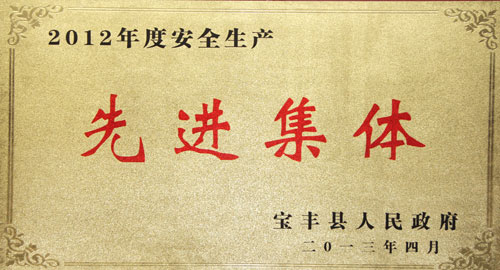 2012年度安全生产
先进集体
宝丰县人民政府
二0一三年四月